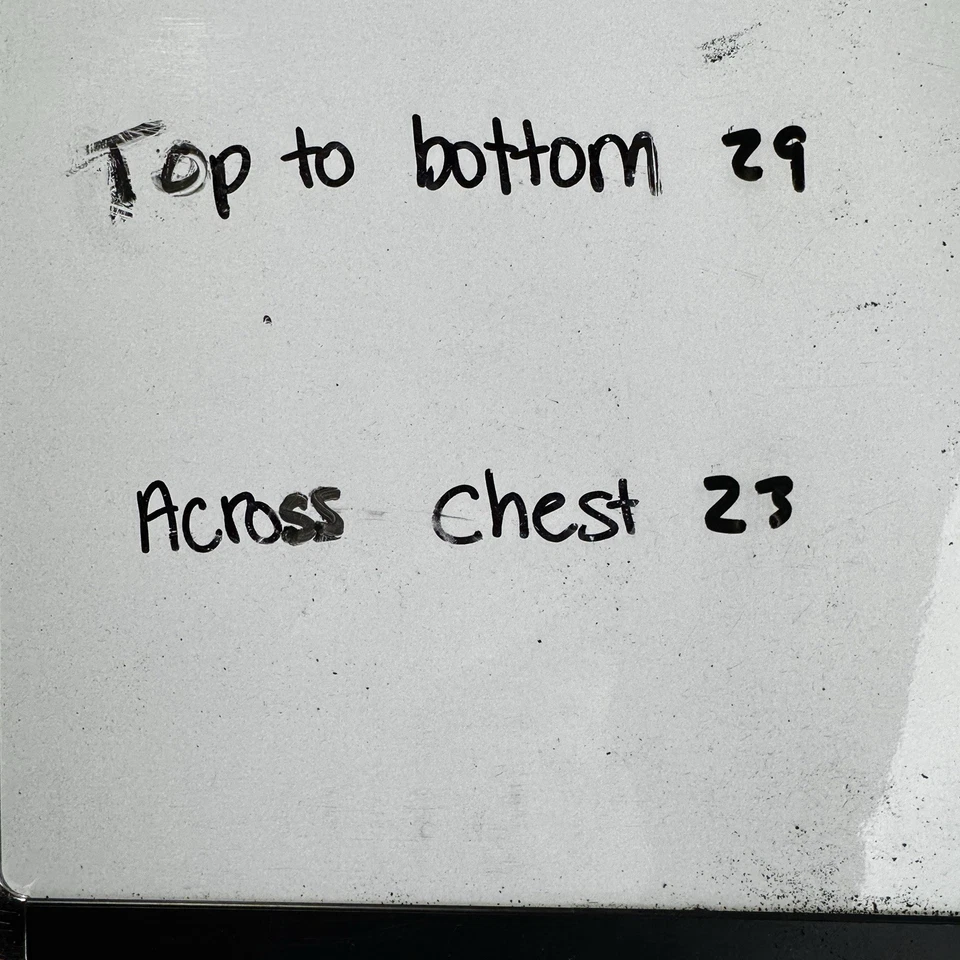 Top to bottom 29
Across chest 23